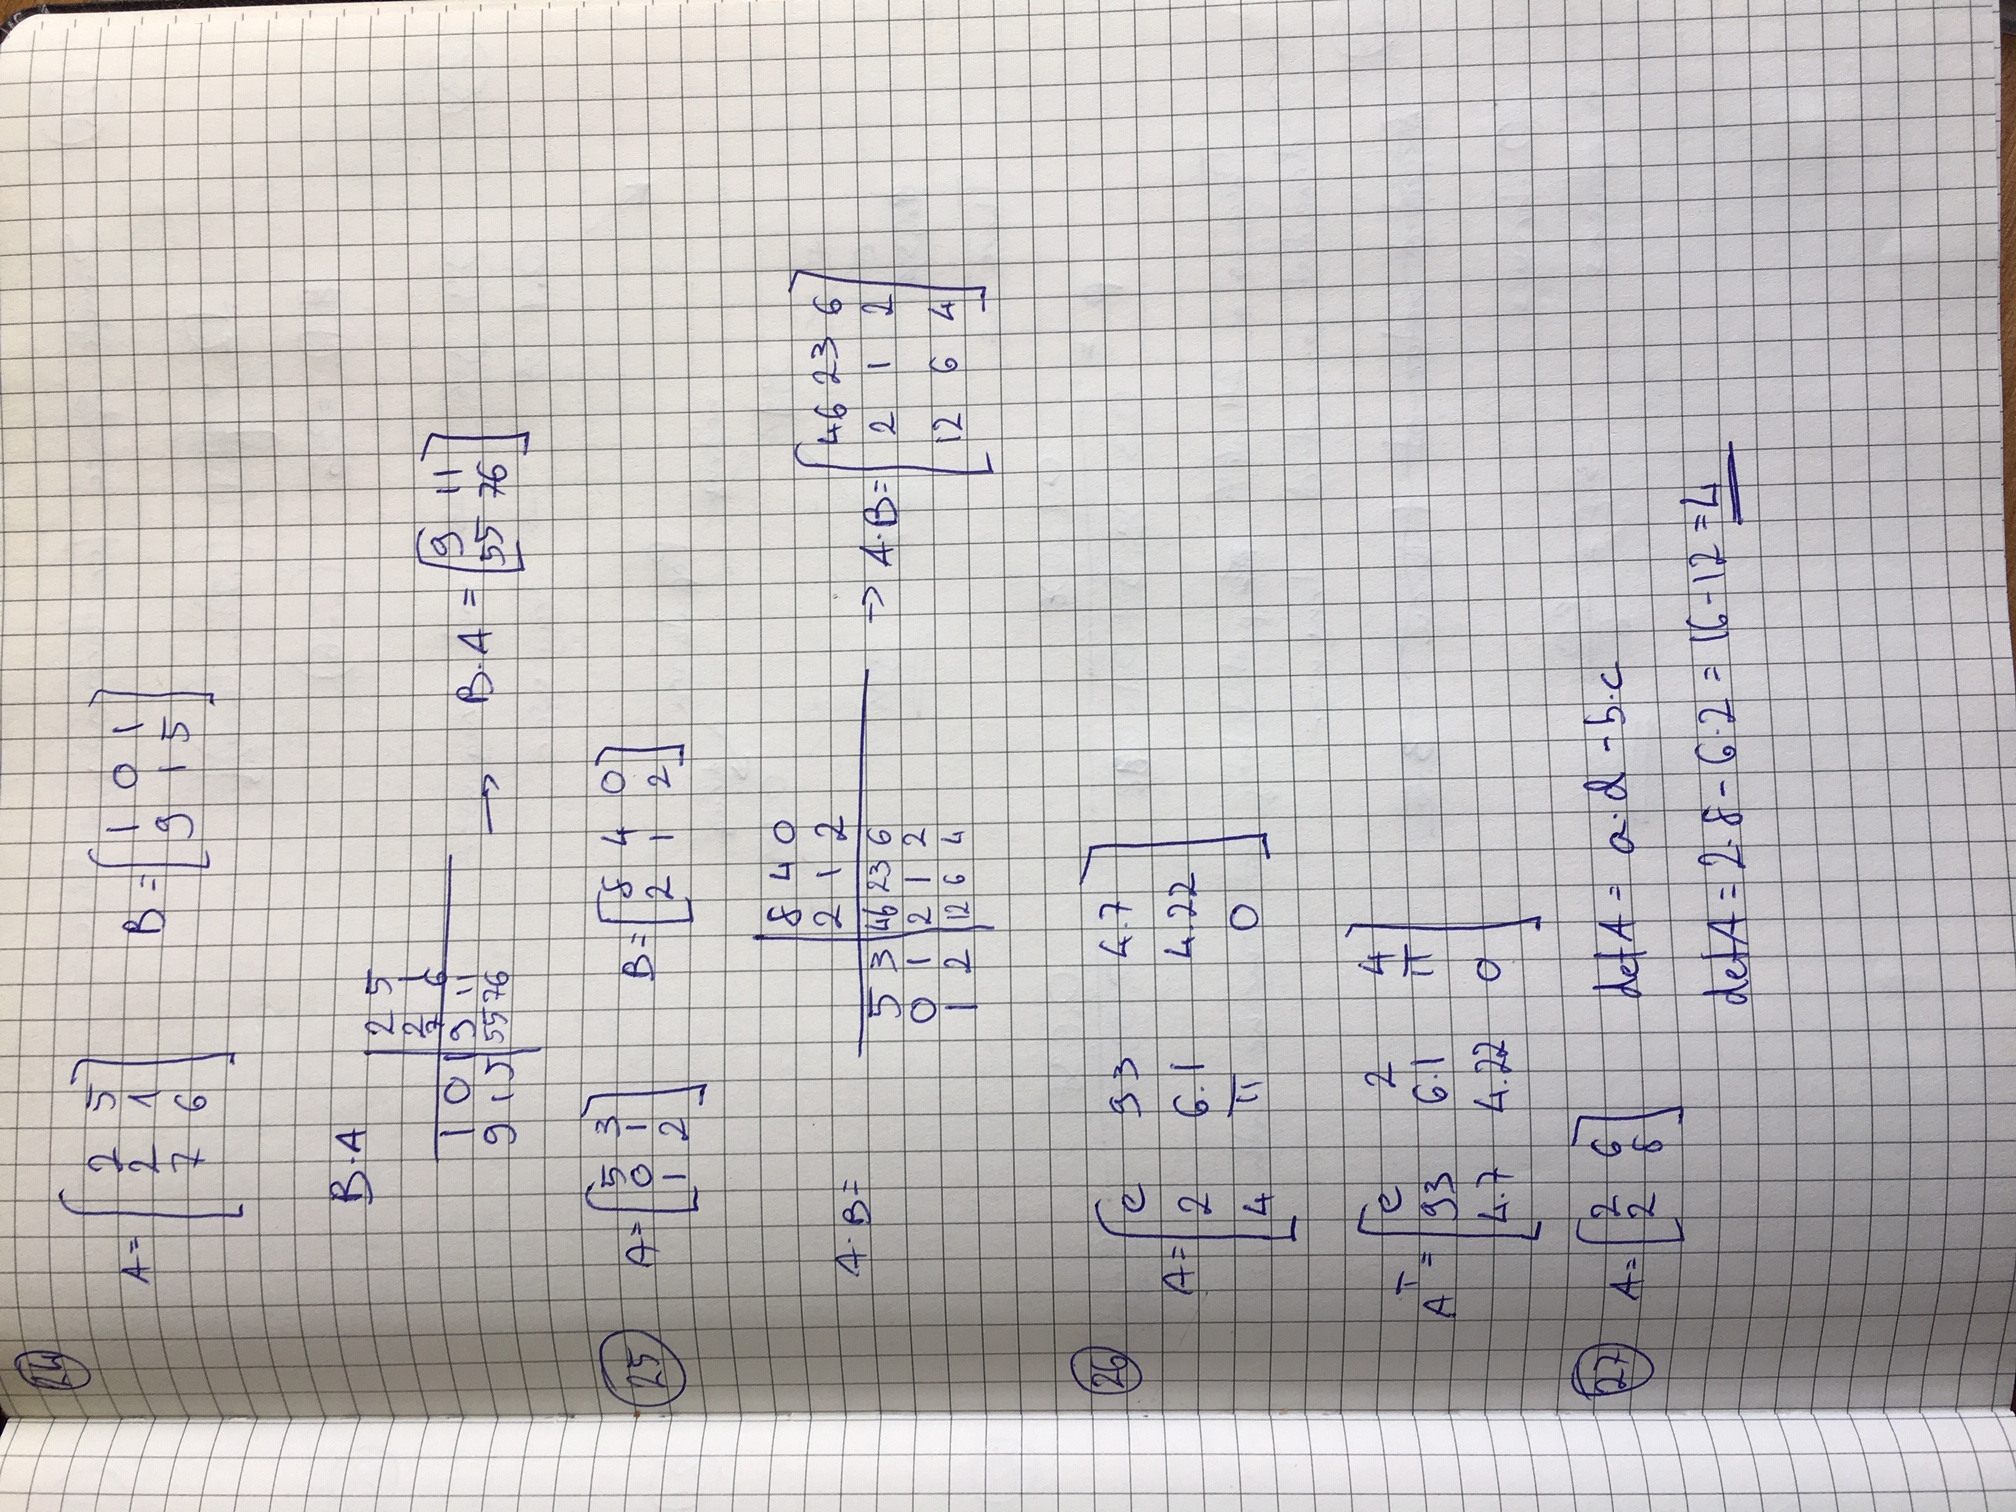 24
A = [ 2 5
2 1
7 6 ]
B = [ 1 0 1
9 1 5 ]
B·A
2 5
2 1
7 6
1 0 1 | 9 11
9 1 5 | 55 76
→ B·A = [ 9 11
55 76 ]
25
A = [ 5 3
0 1
1 2 ]
B = [ 8 4 0
2 1 2 ]
A·B =
8 4 0
2 1 2
5 3 | 46 23 6
0 1 | 2 1 2
1 2 | 12 6 4
→ A·B = [ 46 23 6
2 1 2
12 6 4 ]
26
A = [ e 93 4.7
2 6.1 4.22
4 π 0 ]
A^T = [ e 2 4
93 6.1 π
4.7 4.22 0 ]
27
A = [ 2 6
2 8 ]
det A = a·d - b·c
det A = 2·8 - 6·2 = 16 - 12 = 4